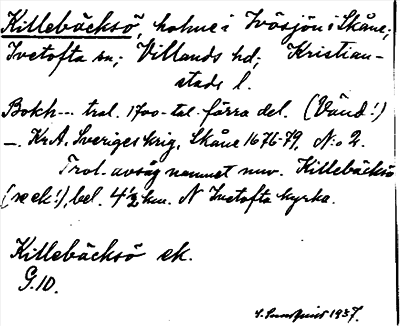 Killebäcksö, holme i Ivösjön i Skåne;
Ivetofta sn; Villands hd; Kristian-
stads l.
Bokh-- tral. 1700-tal. förra del. (Vänd!)
—. Kr.A. Sveriges krig, Skåne 1676-79, N:o 2.
Trol. avsåg namnet nuv. Killebäcksö
(se ek!), bel. 4½ km. N Ivetofta kyrka.
Killebäcksö ek.
G.10.
1937.